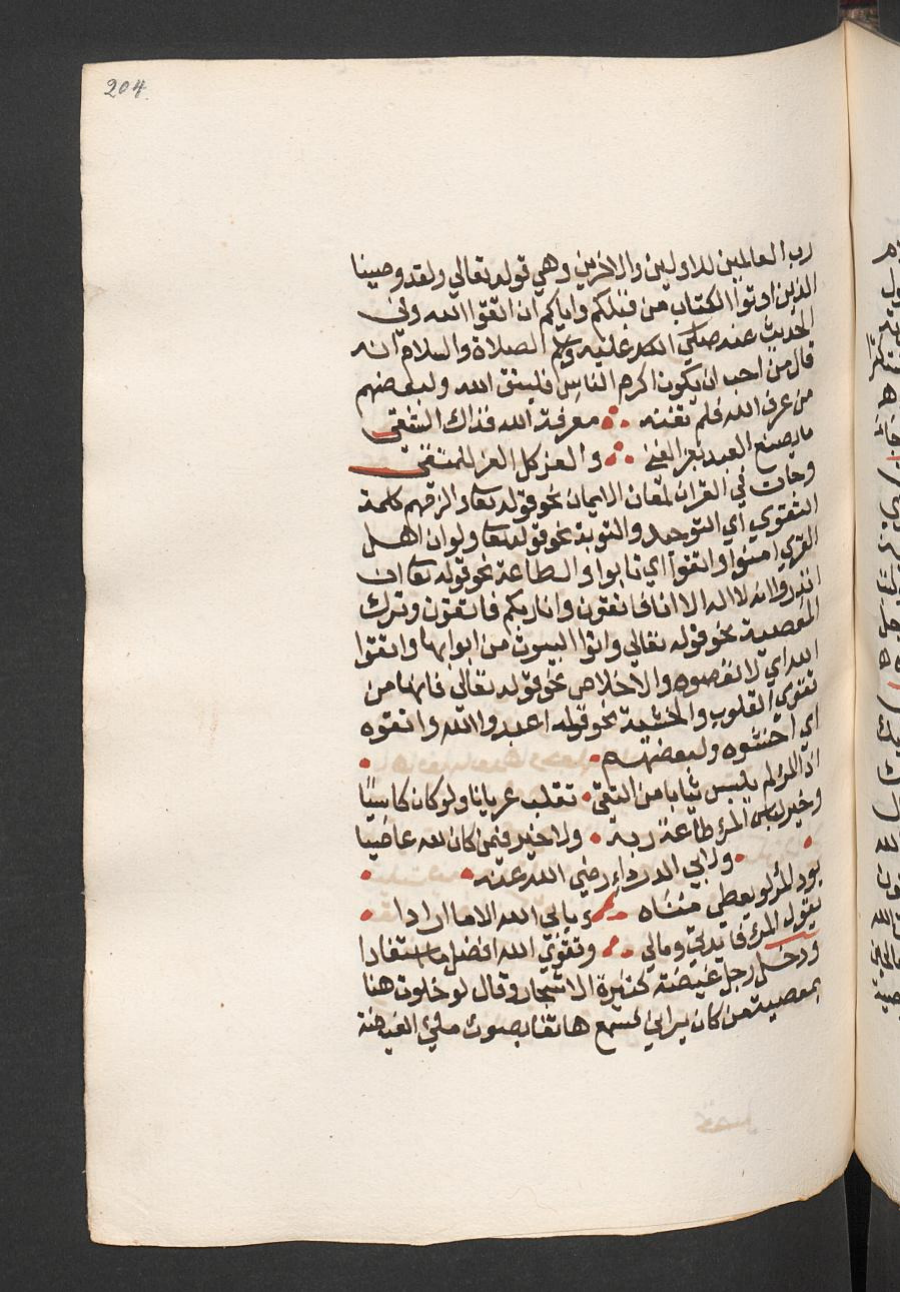 204
رب العالمين للاولين والاخرين وهي قوله تعالي ولقد وصينا
الذين اوتوا الكتاب من قبلكم واياكم ان اتقوا الله وفي
الحديث عنه صلي الله عليه وسلم الصلاة والسلام انه
قال من احب ان يكون اكرم الناس فليتق الله ولبعضهم
من عرف الله فلم تغنه معرفة الله فذاك الشقي
ما يصنع العبد بعز الغني والعز كل العز للمتقي
وجات في القران لمعان الايمان نحو قوله تعا والزمهم كلمة
التقوي اي التوحيد والتوبة نحو قوله تعا ولو ان اهل
القري امنوا واتقوا اي تابوا والطاعة نحو قوله تعا ان
انذروا انه لا اله الا انا فاتقون وانا ربكم فاتقون وترك
المعصية نحو قوله تعالي واتوا البيوت من ابوابها واتقوا
الله اي لا تعصوه والاخلاص نحو قوله تعالي فانها من
تقوي القلوب والخشية نحو قوله اعبدوا الله واتقوه
اي اخشوه ولبعضهم
اذا المرء لم يلبس ثيابا من التقي تقلب عريانا ولو كان كاسيا
وخير لباس المرء طاعة ربه ولا خير فيمن كان لله عاصيا
ولابي الدرداء رضي الله عنه
يود المرء لو يعطي مناه ويابي الله الا ما ارادا
يقول المرء فايدتي ومالي وتقوي الله افضل ما استفادا
ودخل رجل غيضة كثيرة الاشجار وقال لو خلوت هنا
بمعصية من كان يراني فسمع هاتفا بصوت ملئ الغيضة